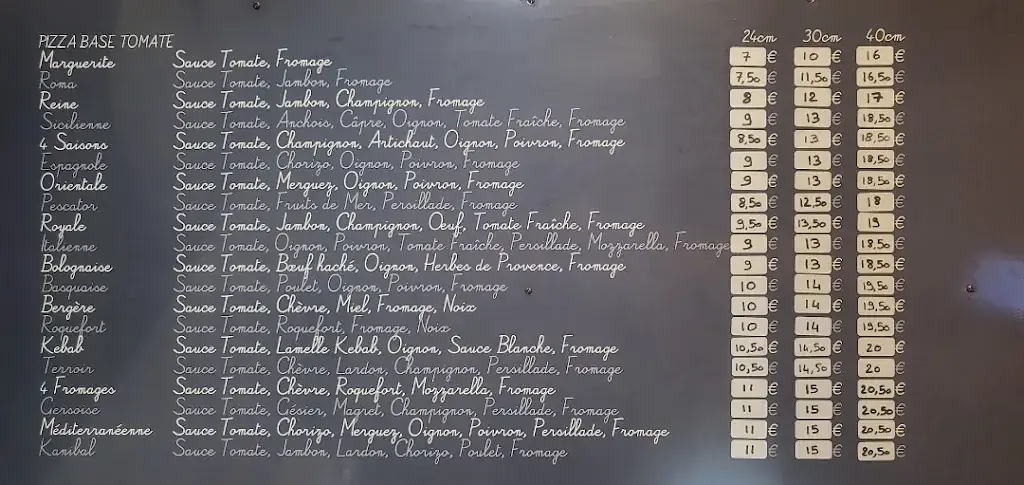 PIZZA BASE TOMATE 24cm 30cm 40cm
Marguerite Sauce Tomate, Fromage 7 € 10 € 16 €
Roma Sauce Tomate, Jambon, Fromage 7,50 € 11,50 € 16,50 €
Reine Sauce Tomate, Jambon, Champignon, Fromage 8 € 12 € 17 €
Sicilienne Sauce Tomate, Anchois, Câpre, Oignon, Tomate Fraîche, Fromage 9 € 13 € 18,50 €
4 Saisons Sauce Tomate, Champignon, Artichaut, Oignon, Poivron, Fromage 8,50 € 13 € 18,50 €
Espagnole Sauce Tomate, Chorizo, Oignon, Poivron, Fromage 9 € 13 € 18,50 €
Orientale Sauce Tomate, Merguez, Oignon, Poivron, Fromage 9 € 13 € 18,50 €
Pescator Sauce Tomate, Fruits de Mer, Persillade, Fromage 8,50 € 12,50 € 18 €
Royale Sauce Tomate, Jambon, Champignon, Oeuf, Tomate Fraîche, Fromage 9,50 € 13,50 € 19 €
Italienne Sauce Tomate, Oignon, Poivron, Tomate Fraîche, Persillade, Mozzarella, Fromage 9 € 13 € 18,50 €
Bolognaise Sauce Tomate, Bœuf haché, Oignon, Herbes de Provence, Fromage 9 € 13 € 18,50 €
Basquaise Sauce Tomate, Poulet, Oignon, Poivron, Fromage 10 € 14 € 19,50 €
Bergère Sauce Tomate, Chèvre, Miel, Fromage, Noix 10 € 14 € 19,50 €
Roquefort Sauce Tomate, Roquefort, Fromage, Noix 10 € 14 € 19,50 €
Kebab Sauce Tomate, Lamelle Kebab, Oignon, Sauce Blanche, Fromage 10,50 € 14,50 € 20 €
Terroir Sauce Tomate, Chèvre, Lardon, Champignon, Persillade, Fromage 10,50 € 14,50 € 20 €
4 Fromages Sauce Tomate, Chèvre, Roquefort, Mozzarella, Fromage 11 € 15 € 20,50 €
Gersoise Sauce Tomate, Gésier, Magret, Champignon, Persillade, Fromage 11 € 15 € 20,50 €
Méditerranéenne Sauce Tomate, Chorizo, Merguez, Oignon, Poivron, Persillade, Fromage 11 € 15 € 20,50 €
Kanibal Sauce Tomate, Jambon, Lardon, Chorizo, Poulet, Fromage 11 € 15 € 20,50 €